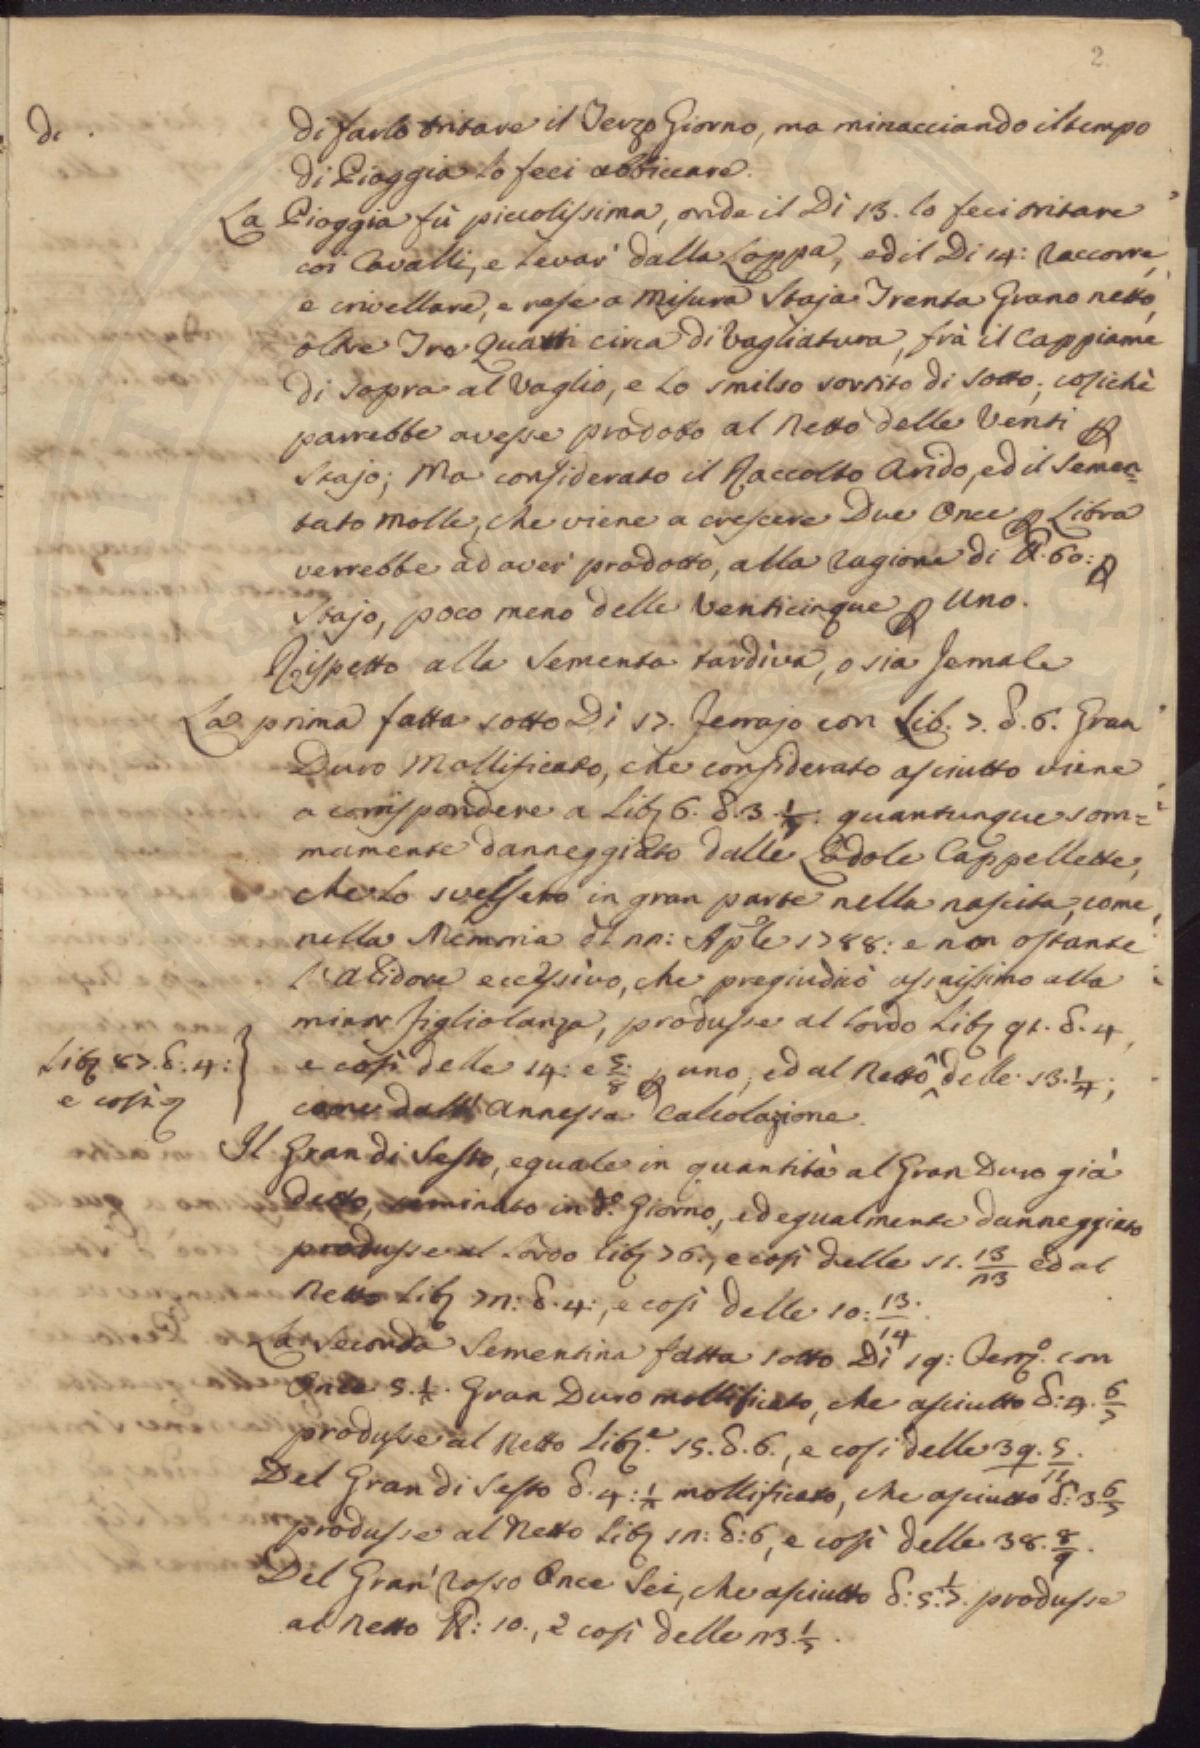 2
di
di farlo tritare il Terzo Giorno, ma minacciando il tempo
di Pioggia lo feci abbiccare.
La Pioggia fù piccolissima, onde il Dì 13. lo feci tritare
coi Cavalli, e Levar' dalla Loppa, ed il Dì 14: raccorre,
e crivellare, e rese a Misura Staja Trenta Grano netto,
oltre Tre Quarti circa di Vagliatura, frà il Cappiame
di sopra al Vaglio, e lo smilso sortito di Sotto; cosichè
parrebbe avesse prodotto al Netto delle Venti p
Stajo; Ma considerato il Raccolto Arido, ed il Semen=
tato Molle, che viene a crescere Due Once p Libra
verrebbe ad aver' prodotto, alla ragione di lb. 60: p
Stajo, poco meno delle Venticinque p Uno.
Rispetto alla Sementa tardiva, o sia Jemale
La prima fatta sotto Dì 17. Jennajo con Lib. 7. δ. 6. Gran
Duro Mollificato, che considerato asciutto viene
a corrispondere a Lib 6. δ. 3. quantunque som=
mamente danneggiato dalle Lodole Cappellette,
che lo svelsero in gran parte nella nascita, come,
nella Memoria di 22: Aple 1788: e non ostante
l'alidore eccessivo, che pregiudicò assaissimo alla
minor figliolanza, produsse al Lordo Lib 91. δ. 4,
e così delle 14: e 5/8 p uno, ed al Netto ^ delle 13. 1/4;
Lib 87. δ: 4: }
e così
come dall' Annessa Calcolazione.
Il Gran di Sesto, eguale in quantità al Gran Duro già
detto, seminato in do. Giorno, ed egualmente danneggiato
produsse al Lordo Lib 76:, e così delle 11. 13/23 ed al
Netto Lib 72: δ. 4:, e così delle 10: 13/14.
La Seconda Sementina fatta sotto Dì 19: Genno. con
Once 5. 1/2. Gran Duro mollificato, che asciutto δ: 4. 6/7
produsse al Netto Libe. 15. δ. 6., e così delle 39. 5/11.
Del Gran di Sesto δ. 4: 1/2 mollificato, che asciutto δ: 3 6/7
produsse al Netto Lib 12: δ: 6, e così delle 38. 8/9.
Del Gran' rosso Once Sei, che asciutto δ: 5: 1/7. produsse
al Netto lb: 10., e così delle 23 1/3.